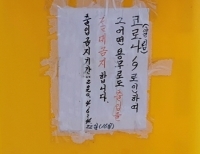 코로나 19로 인하여
(일반)
그 어떤 용무로도 출입을
절대 금지 합니다.
출입금지기간:2020.4.6일